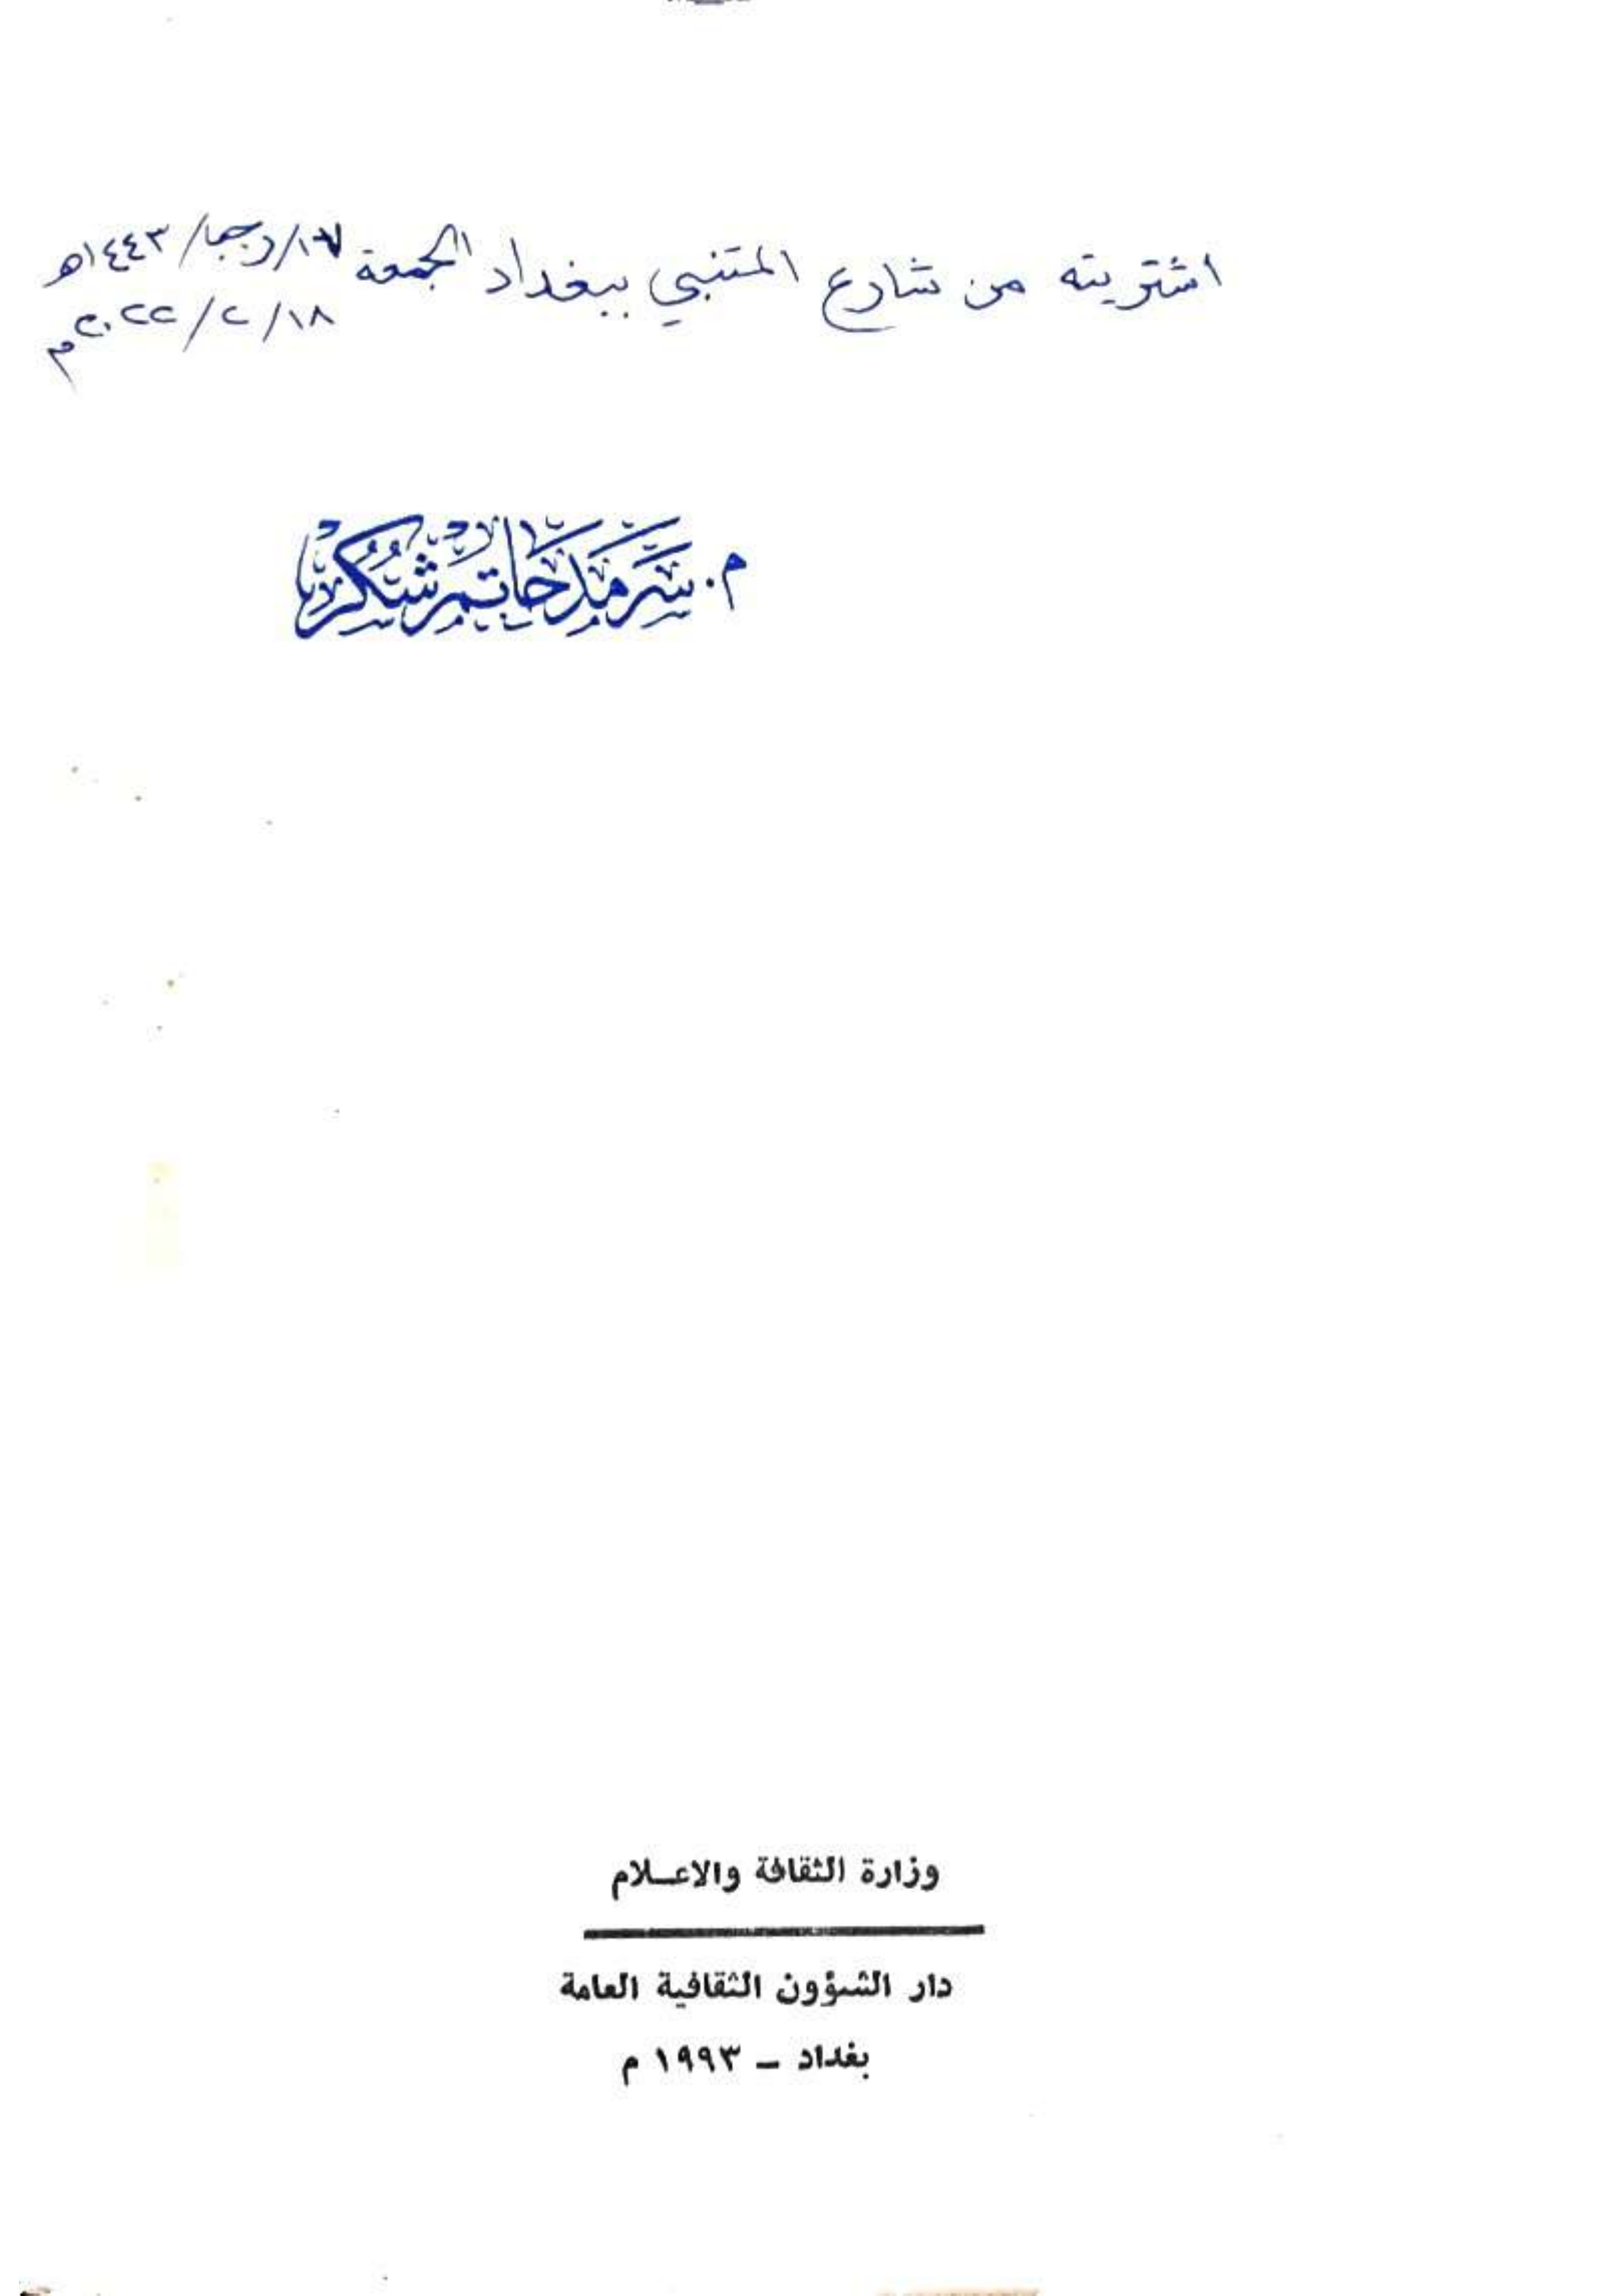 اشتريته من شارع المتنبي ببغداد الجمعة ١٧/رجب/١٤٤٣ه
٢٠٢٢/٢/١٨م
م. سرمد حاتم شكر
وزارة الثقافة والاعــلام
دار الشؤون الثقافية العامة
بغداد ــ ١٩٩٣ م